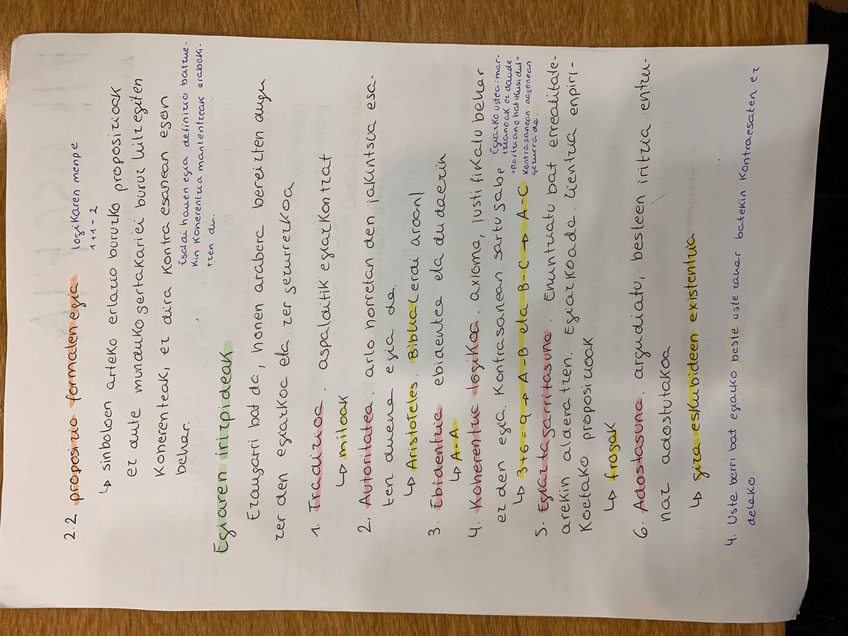 2.2 proposizio formalen egia logikaren menpe
1+1=2
↳ sinboloen arteko erlazio buruzko proposizioak
ez dute munduko gertakariei buruz hitz egiten
koherenteak, ez dira kontra esanean egon
behar.
Esaldi hauen egia definizio batzue-
kin koherentzia mantentzeak erabaki-
tzen du.
Egiaren irizpideak
Ezaugarri bat da, honen arabera bereizten dugu
zer den egiazkoa eta zer gezurrezkoa
1. Tradizioa. aspalditik egiazkontzat
↳ mitoak
2. Autoritatea. arlo horretan den jakintsua esa-
ten duena egia da.
↳ Aristoteles Biblia (erdi aroan)
3. Ebidentzia ebidentea eta dudaezin
↳ A=A
4. Koherentzia logikoa. axioma, justifikatu behar
ez den egia. Kontrasanean sartu gabe
Egiazko ustea: mar-
tzianoak ez daude.
"Martziano bat ikusi dut"
kontrasanean dagoenean
gezurra da.
↳ 3+6=9 → A=B eta B=C → A=C
5. Egiaztagarritasuna. Enuntziatu bat errealitate-
arekin alderatzen. Egiazkoa da. Zientzia enpiri-
koetako proposizioak
↳ frogak
6. Adostasuna. argudiatu, besteen iritzia entzu-
naz adostutakoa
↳ giza eskubideen existentzia
4. Uste berri bat egiazko beste uste zahar batekin kontraesaten ez
delako.